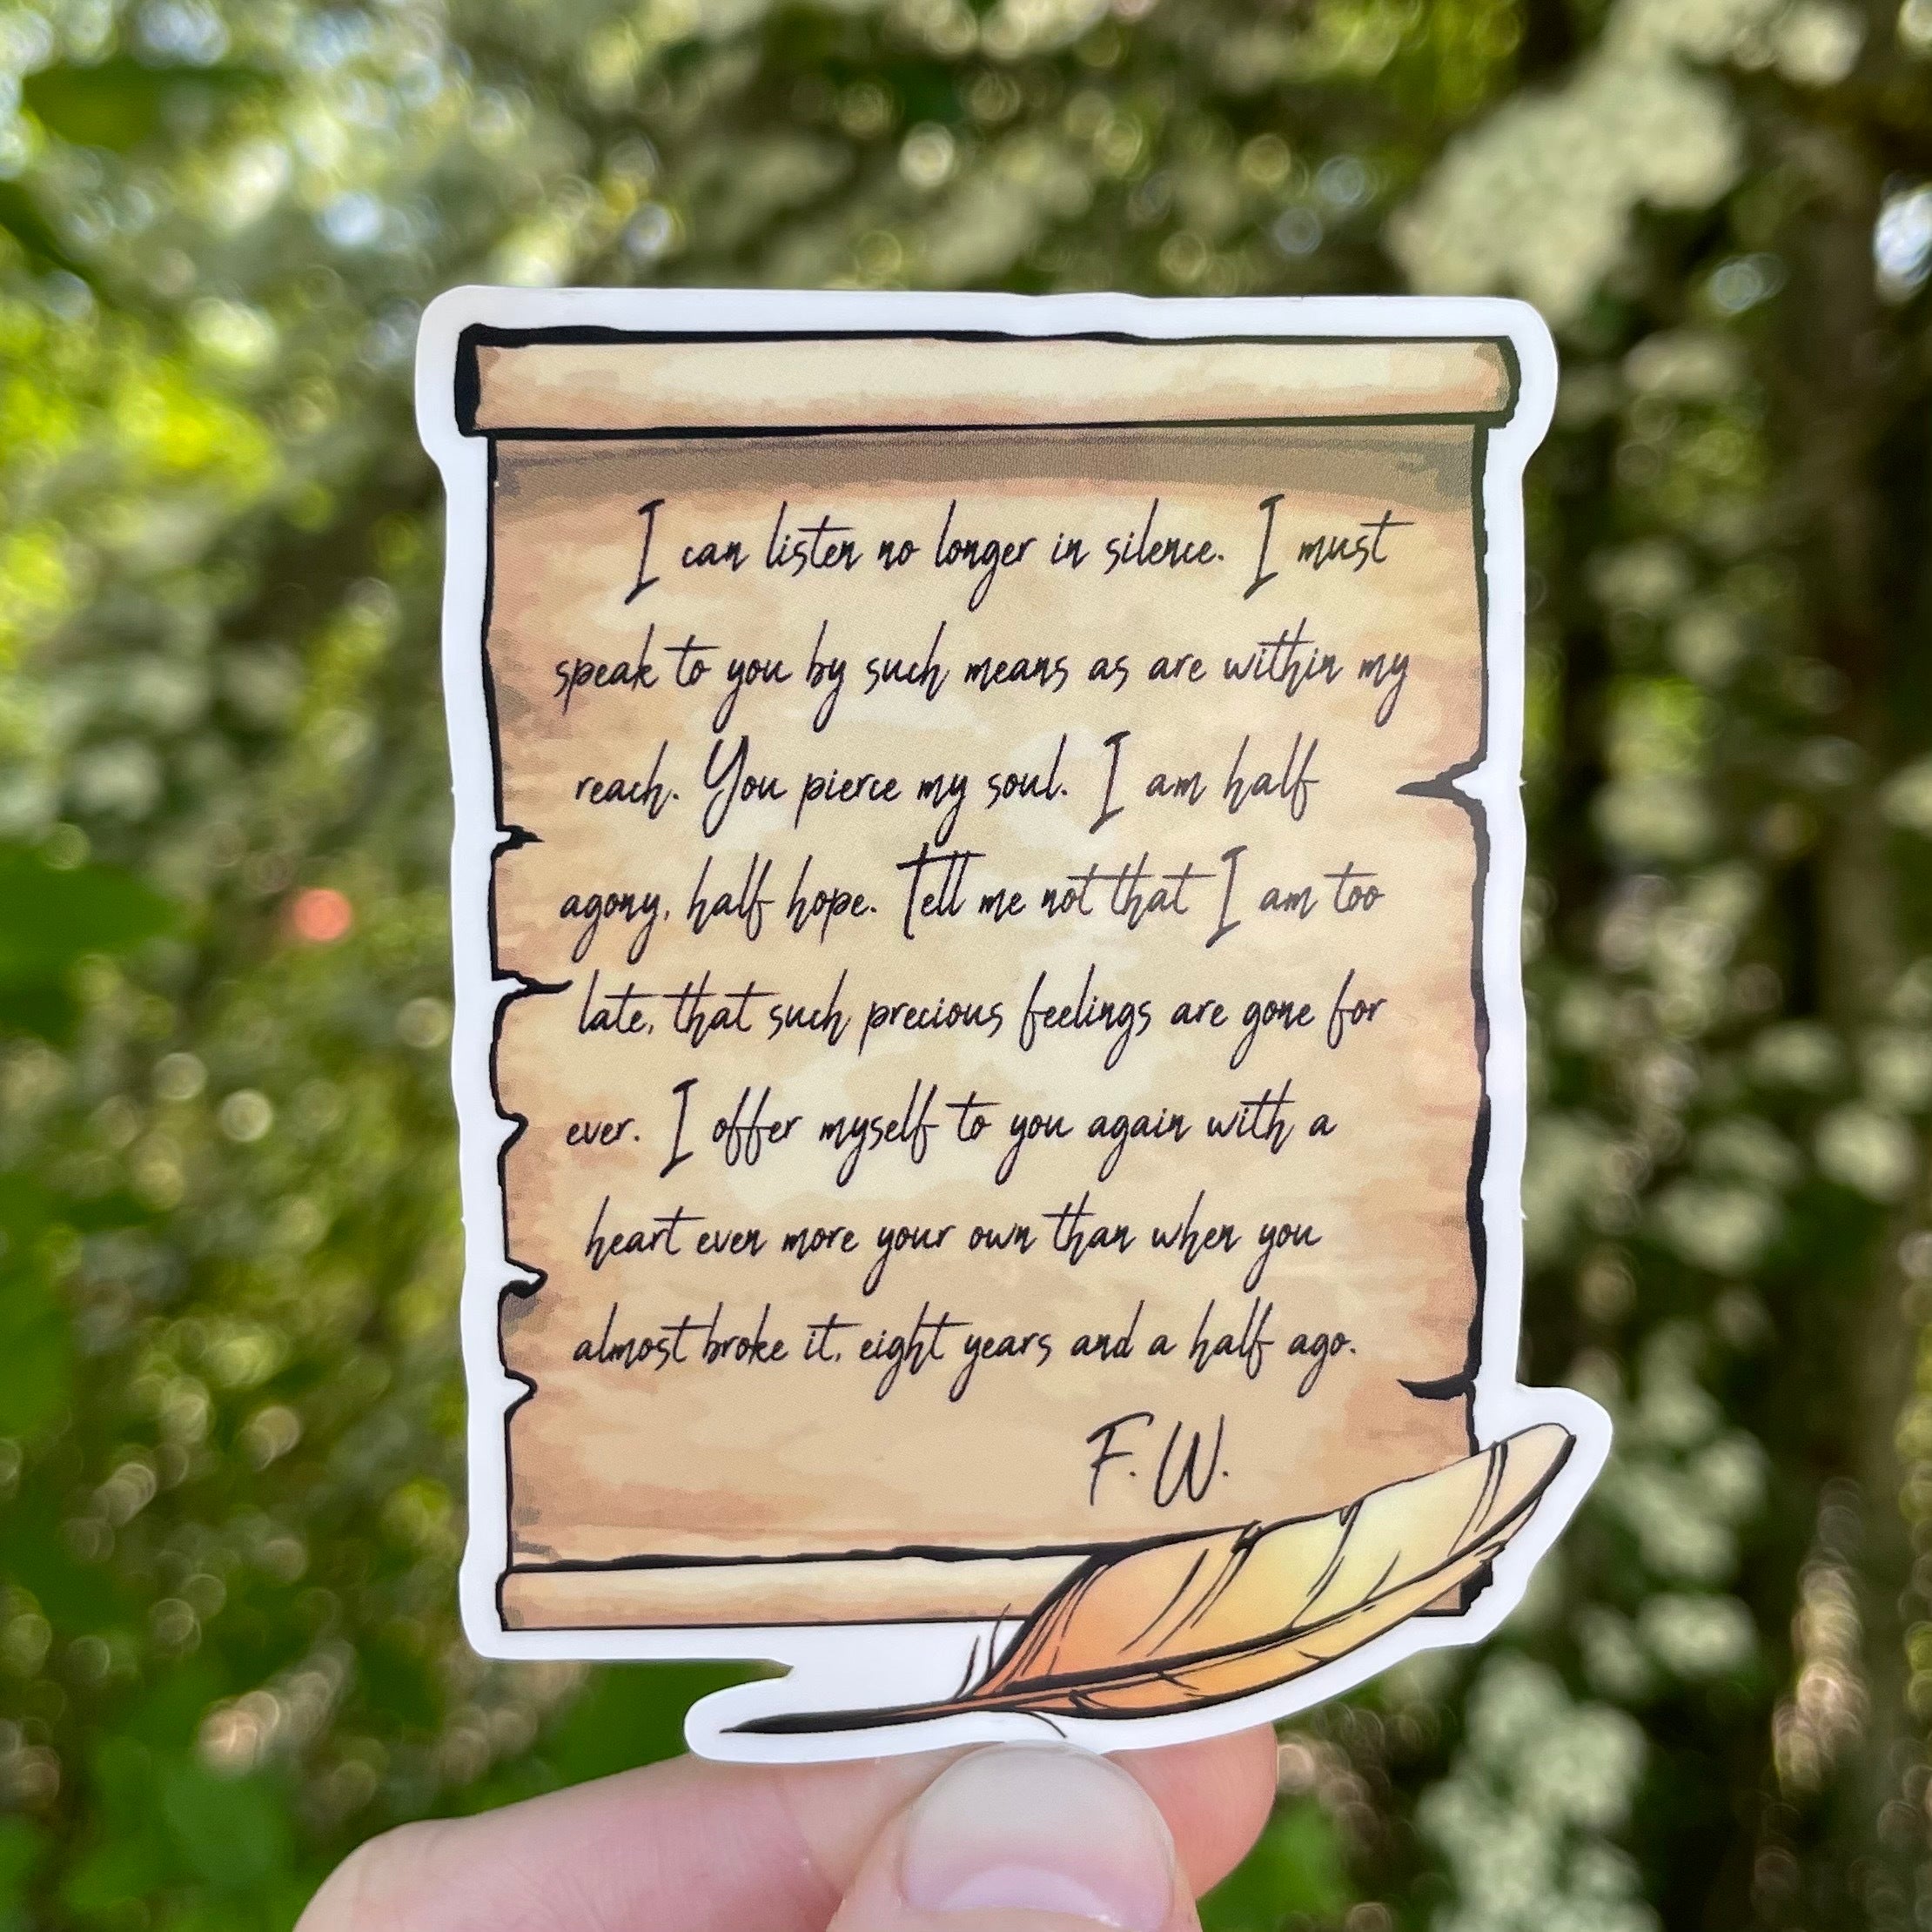 I can listen no longer in silence. I must
speak to you by such means as are within my
reach. You pierce my soul. I am half
agony, half hope. Tell me not that I am too
late, that such precious feelings are gone for
ever. I offer myself to you again with a
heart even more your own than when you
almost broke it, eight years and a half ago.
F. W.